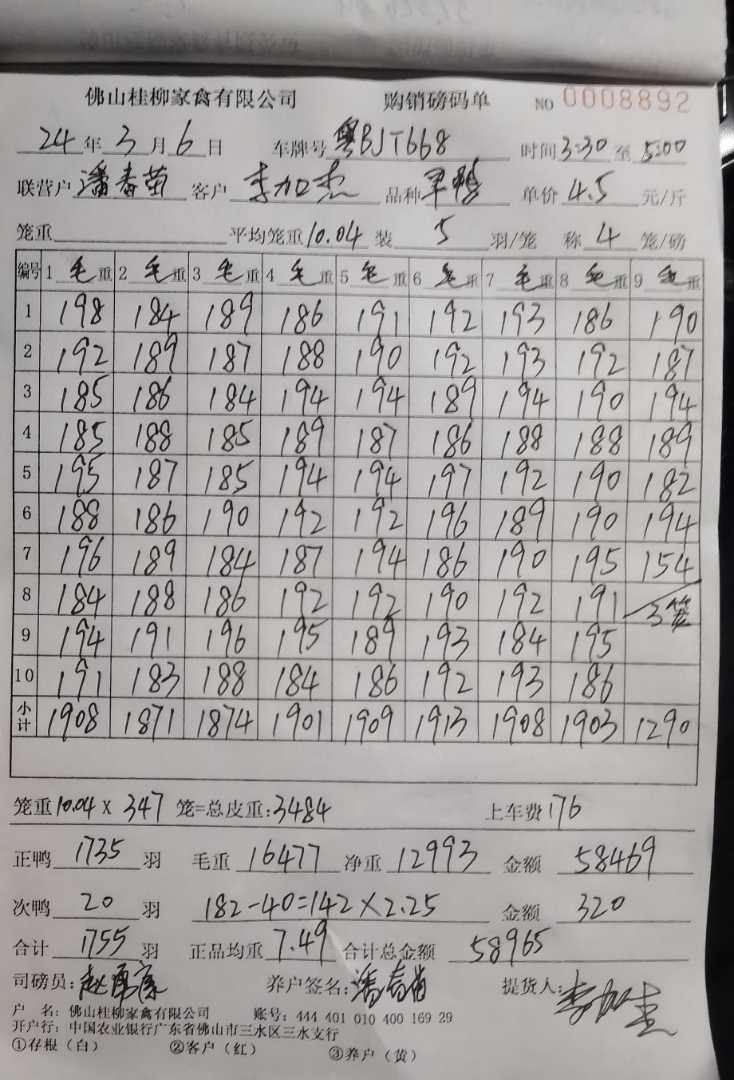 佛山桂柳家禽有限公司 购销磅码单 NO 0008892
24年3月6日 车牌号 粤BJT668 时间3:30至5:00
联营户 潘春苗 客户 李加杰 品种 单价 4.5 元/斤
笼重 平均笼重10.04 装 5 羽/笼 称 4 笼/磅
编号 1 毛重 2 毛重 3 毛重 4 毛重 5 毛重 6 毛重 7 毛重 8 毛重 9 毛重
1 198 184 189 186 191 192 193 186 190
2 192 189 187 188 190 192 193 192 187
3 185 186 184 194 194 189 194 190 194
4 185 188 185 189 187 186 188 188 189
5 195 187 185 194 194 197 192 190 182
6 188 186 190 192 192 196 189 190 194
7 196 189 184 187 194 186 190 195 154
8 184 188 186 192 192 190 192 191 3笼
9 194 191 196 195 189 193 184 195
10 191 183 188 184 186 192 193 186
小计 1908 1871 1874 1901 1909 1913 1908 1903 1290
笼重10.04 X 347 笼=总皮重:3484 上车费176
正鸭 1735 羽 毛重 16477 净重 12993 金额 58469
次鸭 20 羽 182-40=142×2.25 金额 320
合计 1755 羽 正品均重 7.49 合计总金额 58965
司磅员: 养户签名:潘春苗 提货人:李加杰
户 名: 佛山桂柳家禽有限公司 账号: 444 401 010 400 169 29
开户行: 中国农业银行广东省佛山市三水区三水支行
①存根(白) ②客户(红) ③养户(黄)